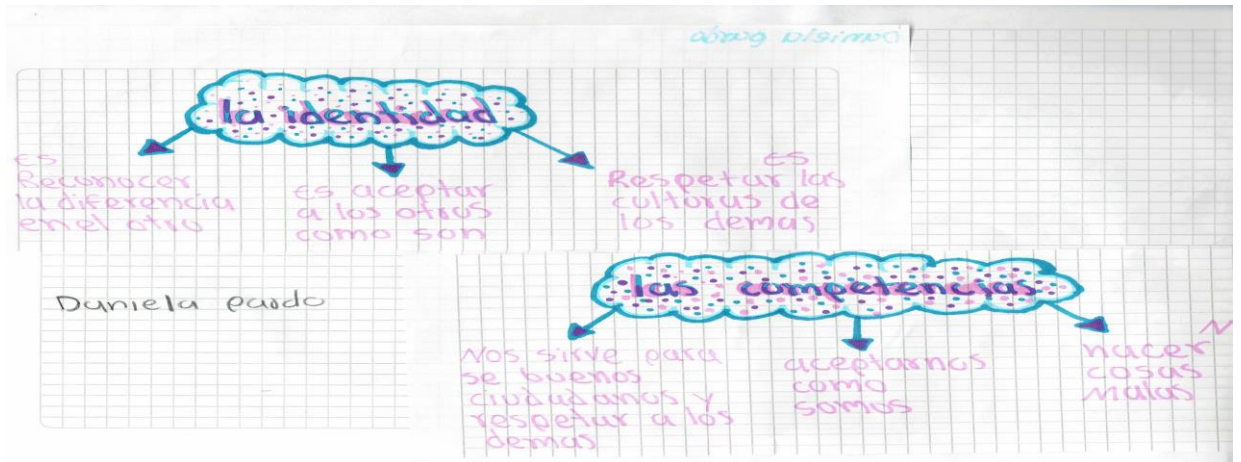 la identidad
es
Reconocer
la diferencia
en el otro
es aceptar
a los otros
como son
es
Respetar las
culturas de
los demas
Daniela pardo
las competencias
Nos sirve para
se buenos
ciudadanos y
respetar a los
demas
aceptarnos
como
somos
N
hacer
cosas
malas